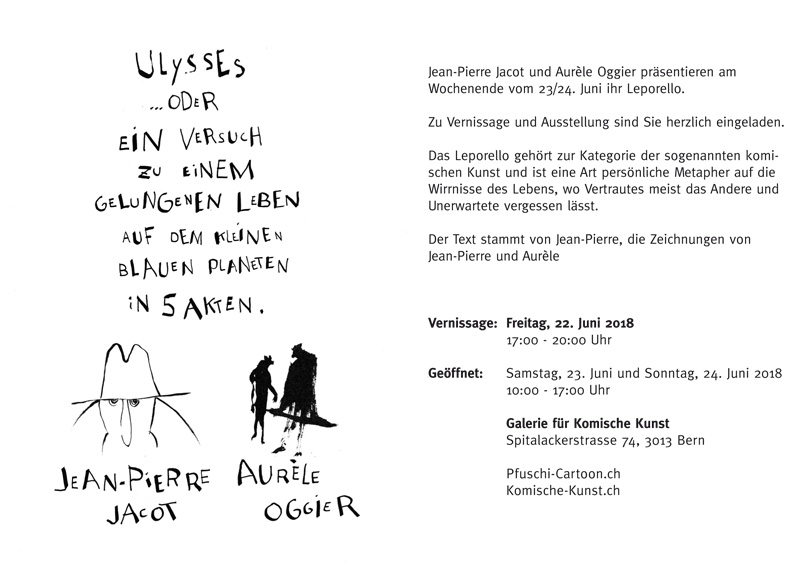 ULYSSES
...ODER
EIN VERSUCH
ZU EINEM
GELUNGENEN LEBEN
AUF DEM KLEINEN
BLAUEN PLANETEN
IN 5 AKTEN.
JEAN-PIERRE
JACOT
AURÈLE
OGGIER
Jean-Pierre Jacot und Aurèle Oggier präsentieren am
Wochenende vom 23/24. Juni ihr Leporello.
Zu Vernissage und Ausstellung sind Sie herzlich eingeladen.
Das Leporello gehört zur Kategorie der sogenannten komi-
schen Kunst und ist eine Art persönliche Metapher auf die
Wirrnisse des Lebens, wo Vertrautes meist das Andere und
Unerwartete vergessen lässt.
Der Text stammt von Jean-Pierre, die Zeichnungen von
Jean-Pierre und Aurèle
Vernissage: Freitag, 22. Juni 2018
17:00 - 20:00 Uhr
Geöffnet: Samstag, 23. Juni und Sonntag, 24. Juni 2018
10:00 - 17:00 Uhr
Galerie für Komische Kunst
Spitalackerstrasse 74, 3013 Bern
Pfuschi-Cartoon.ch
Komische-Kunst.ch